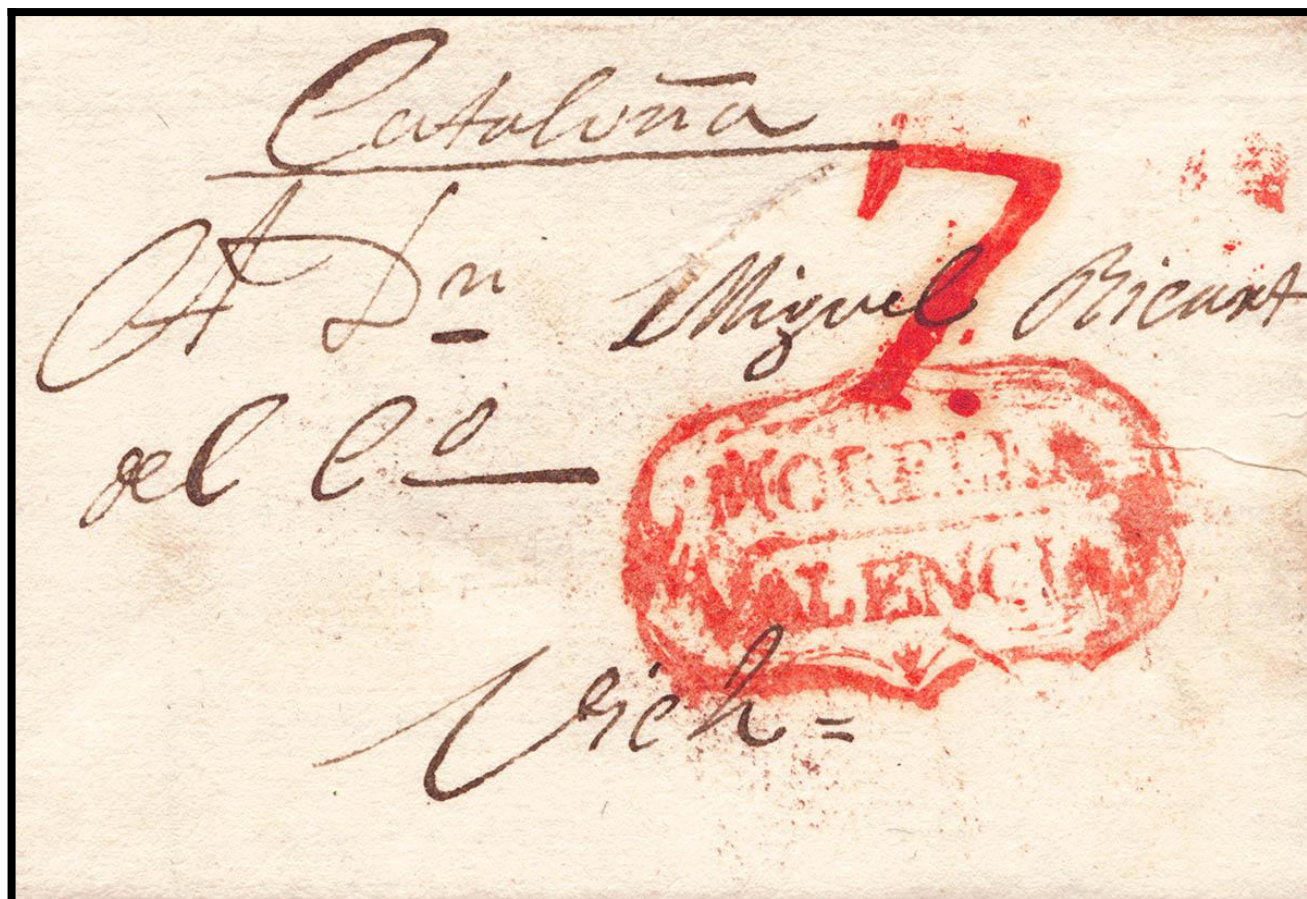 Cataluña
7.
A Dn Miguel Ricart
del Co
MORELLA
VALENCIA
Vich =